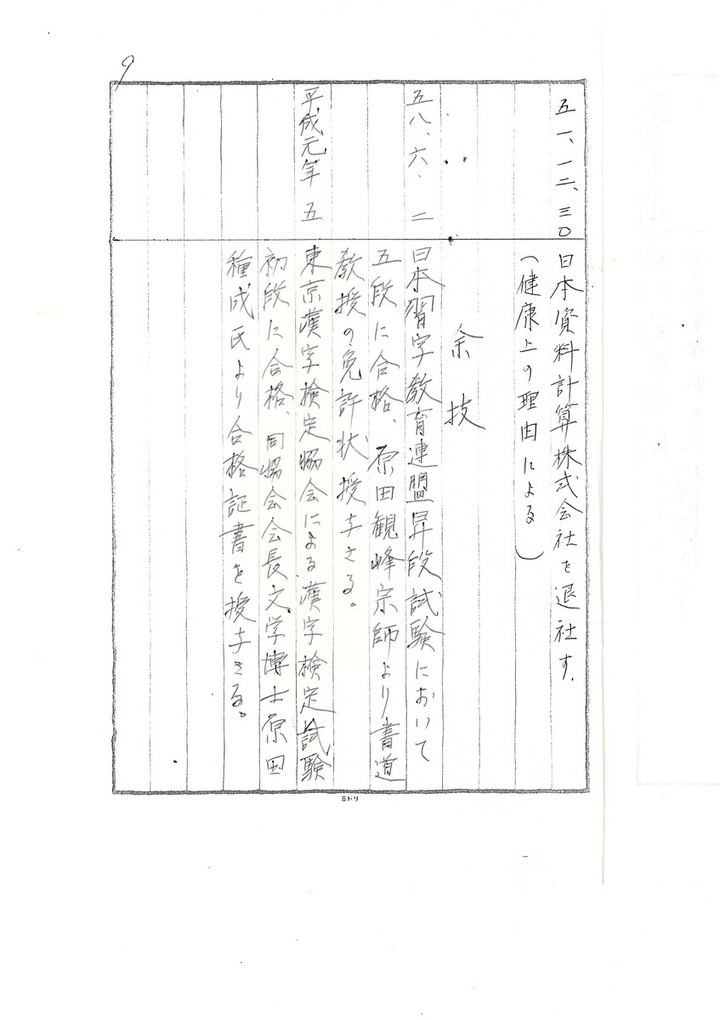 9
五一、一二、三〇 日本資料計算株式会社を退社す、
(健康上の理由による)
余技
五八、六、二 日本習字教育連盟昇段試験において
五段に合格、原田観峰宗師より書道
教授の免許状授与さる。
平成元年 五 東京漢字検定協会による漢字検定試験
初段に合格、同協会会長文学博士原田
種成氏より合格証書を授与さる。
ミドリ